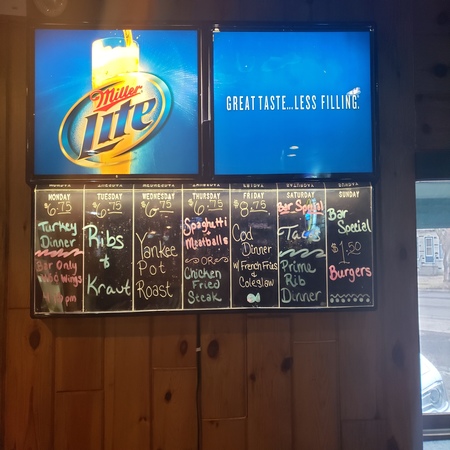 Miller
Lite
GREAT TASTE...LESS FILLING.
MONDAY
$6.75
Turkey
Dinner
Bar Only
Wings
TUESDAY
$6.75
Ribs
&
Kraut
WEDNESDAY
$6.75
Yankee
Pot
Roast
THURSDAY
$6.75
Spaghetti
Meatballs
OR
Chicken
Fried
Steak
FRIDAY
$8.75
Cod
Dinner
w/ French Fries
&
Coleslaw
SATURDAY
Bar Special
Prime
Rib
Dinner
SUNDAY
Bar
Special
$1.50
Burgers